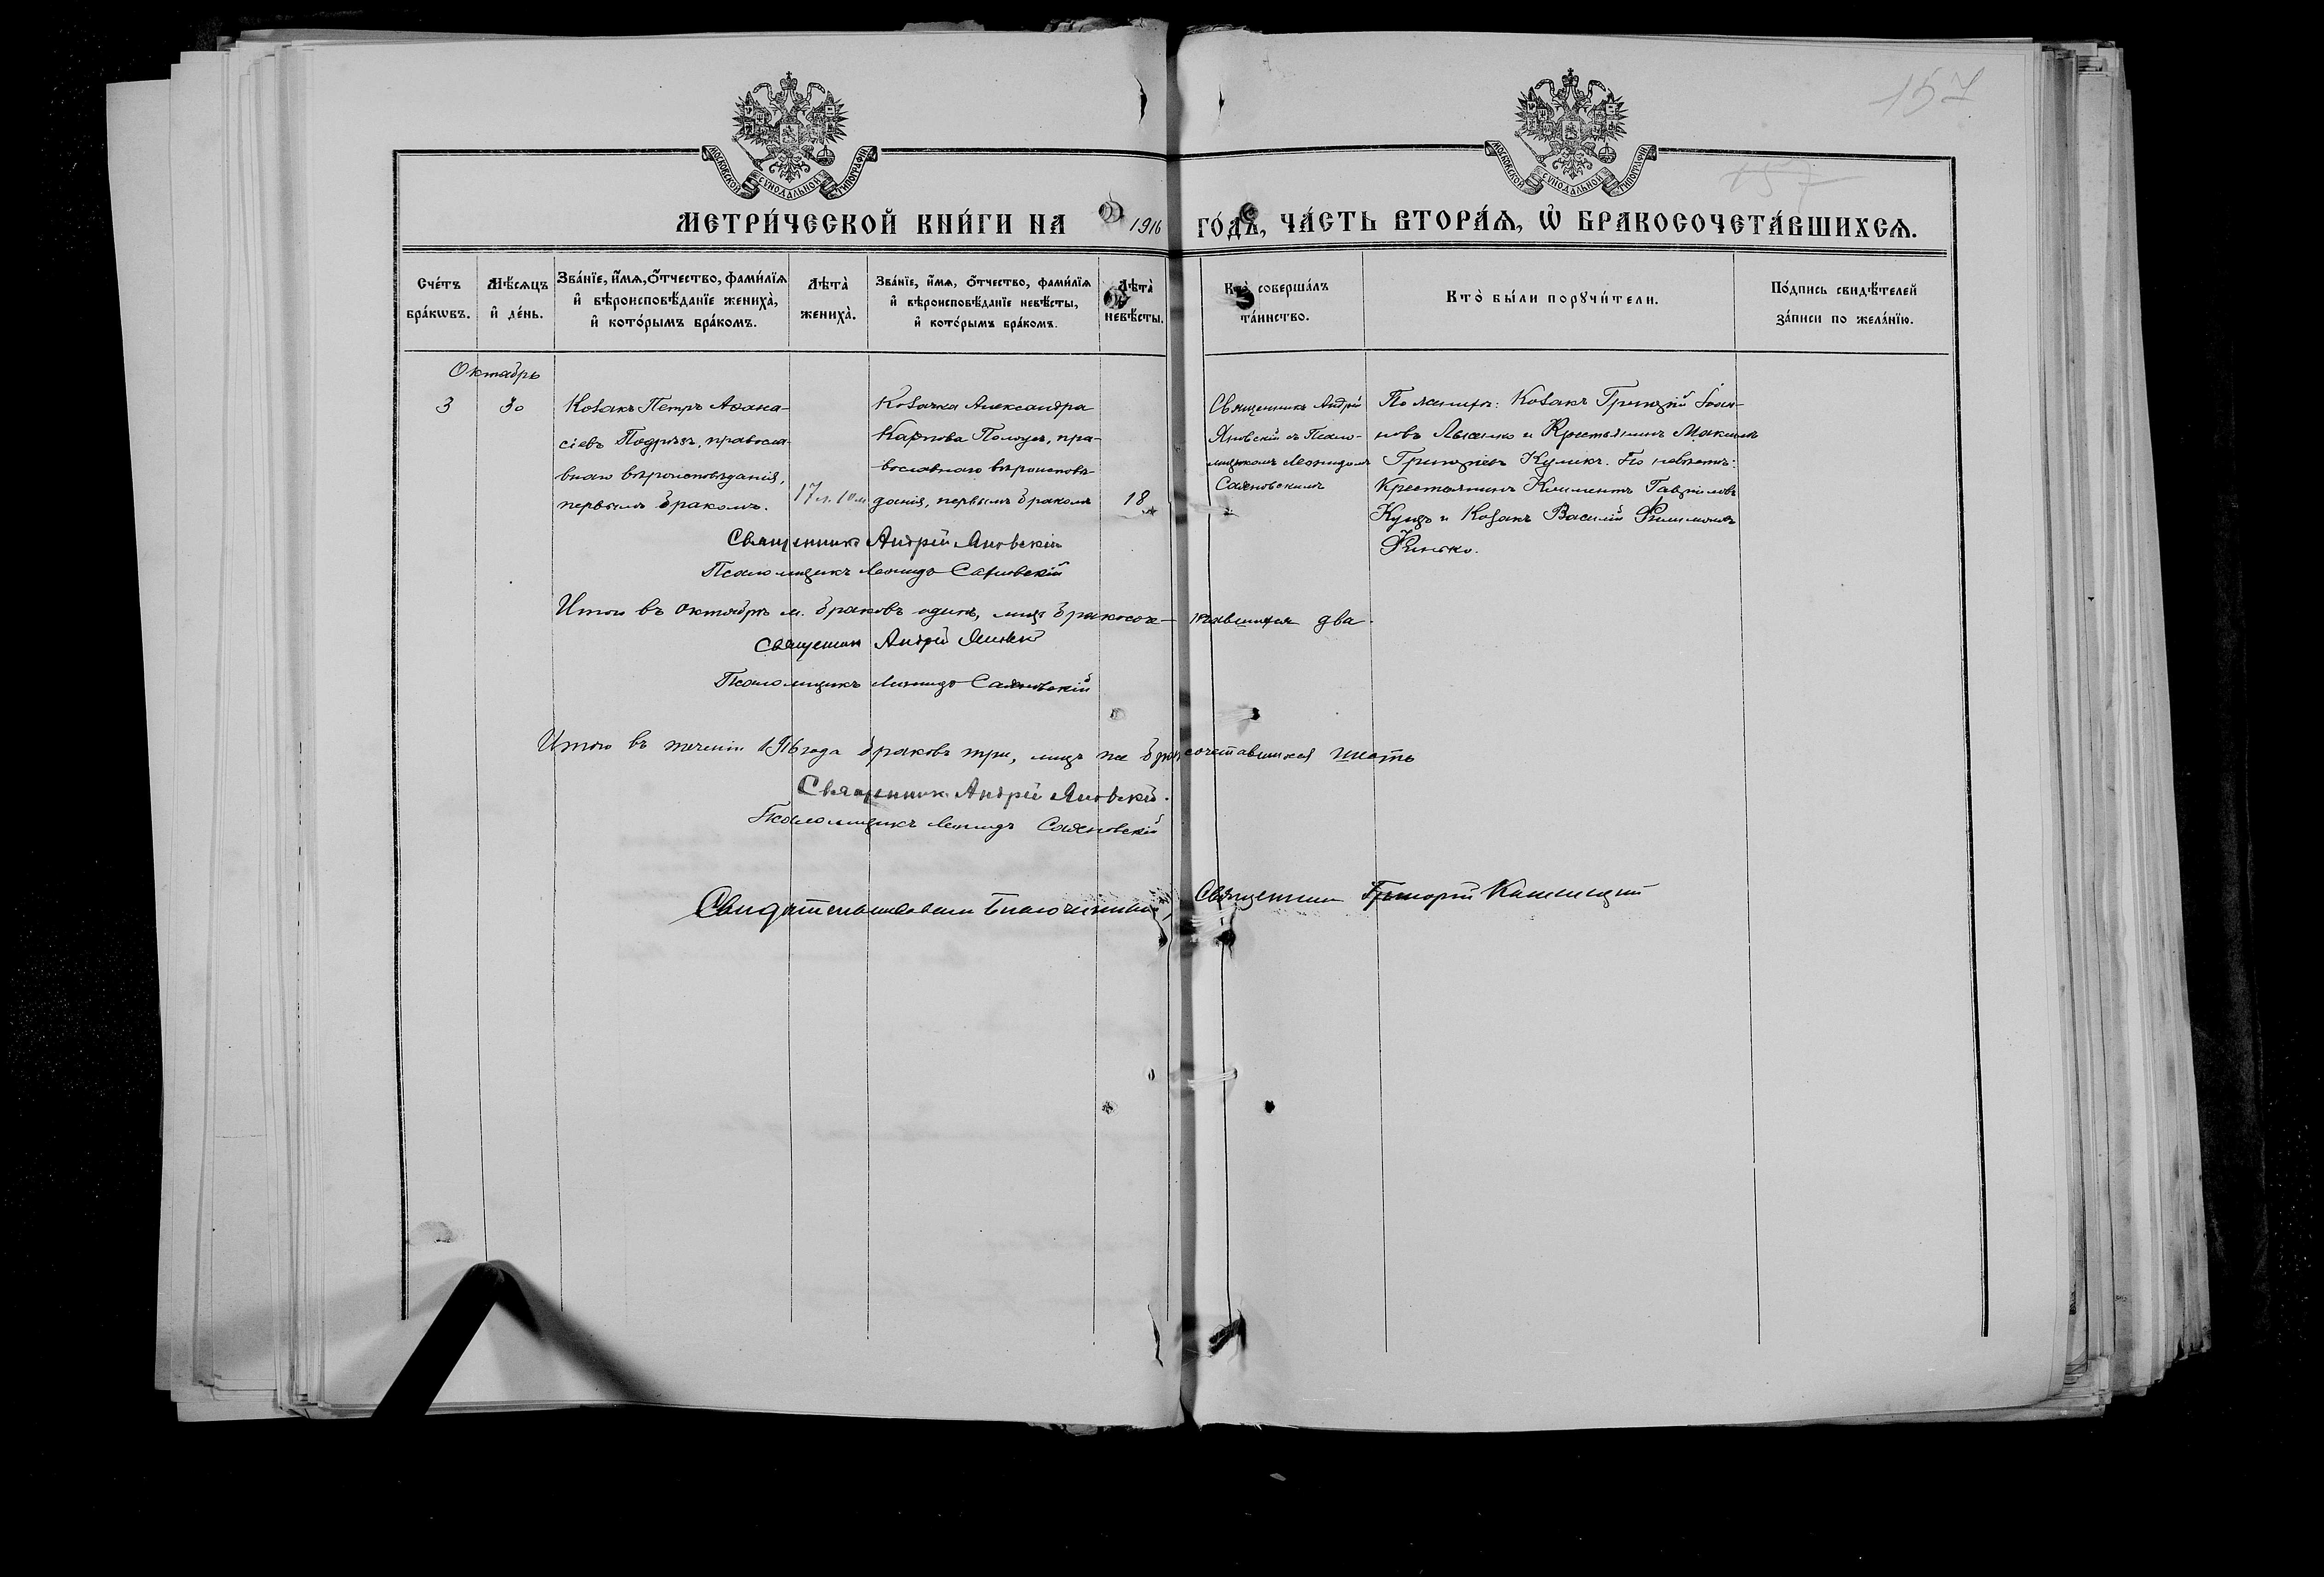 157
157
МОСКОВСКОЙ СѴНОДАЛЬНОЙ ТИПОГРАФІИ
МОСКОВСКОЙ СѴНОДАЛЬНОЙ ТИПОГРАФІИ
МЕТРИ́ЧЕСКОЙ КНИ́ГИ НА 1916 ГО́ДЪ, ЧА́СТЬ ВТОРА́Ѧ, Ѡ҆ БРАКОСОЧЕТА́ВШИХСѦ.
Сче́тъ бра́кѡвъ.
Мѣ́сѧцъ и҆ де́нь.
Зва́нїе, и҆́мѧ, ѻ҆́тчество, фами́лїѧ и҆ вѣроисповѣ́данїе жениха̀, и҆ кото́рымъ бра́комъ.
Лѣта̀ жениха̀.
Зва́нїе, и҆́мѧ, ѻ҆́тчество, фами́лїѧ и҆ вѣроисповѣ́данїе невѣ́сты, и҆ кото́рымъ бра́комъ.
Лѣта̀ невѣ́сты.
Кто̀ соверша́лъ та́инство.
Кто̀ бы́ли порꙋчи́тели.
По́дпись свидѣ́телей за́писи по жела́нїю.
Октябрь
3
30
Козакъ Петръ Аѳана-
сіевъ православ-
наго вѣроисповѣданія,
первымъ бракомъ.
17 л. 10 м.
Козачка Александра
Карпова пра-
вославнаго вѣроисповѣ-
данія, первымъ бракомъ
18
Священникъ Андрей
Яновскій съ Псало-
мщикомъ Леонидомъ
Сахновскимъ
По женихѣ: Козакъ Григорій Іоан-
новъ Лысенко и Крестьянинъ Максимъ
Григорьевъ Куликъ. По невѣстѣ:
Крестьянинъ Климентъ Гавріиловъ
и Козакъ Василій Филимоновъ
Священникъ Андрей Яновскій
Псаломщикъ Леонидъ Сахновскій
Итого въ октябрѣ м. браковъ одинъ, лицъ бракосоче-тавшихся два.
Священник Андрей Яновскій
Псаломщикъ Леонидъ Сахновскій
Итого въ теченіи 1916 года браковъ три, лицъ сочетавшихся шесть
Священник Андрей Яновскій.
Псаломщикъ Леонидъ Сахновскій
Свидѣтельствовалъ Благочинный, Священник Григорій